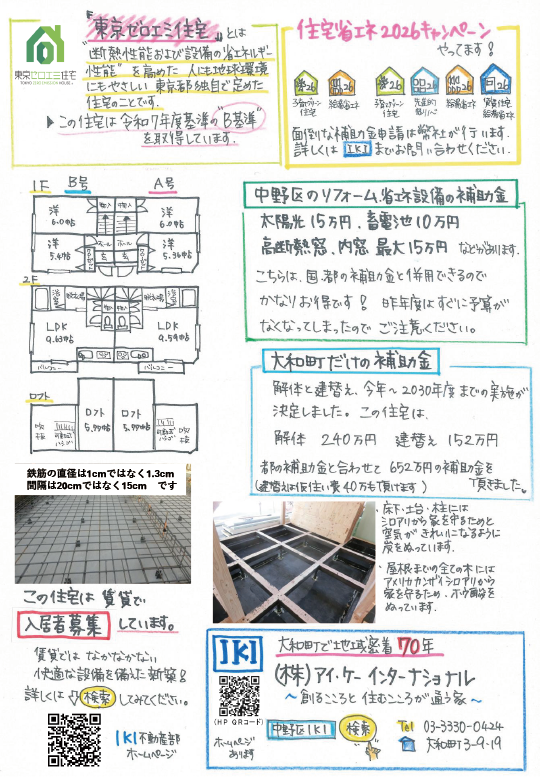 「東京ゼロエミ住宅」とは
"断熱性能および設備の省エネルギー
性能"を高めた 人にも地球環境
にもやさしい 東京都独自で定めた
住宅のことです。
▶この住宅は令和7年度基準の"B基準"
を取得しています。
東京ゼロエミ住宅
住宅省エネ2026キャンペーン
やってます!
26 26 26 26 26 26
面倒な補助金申請は弊社が行います.
詳しくは IKI までお問い合わせください.
1F B号 A号
洋 6.0帖
洋 6.0帖
洋
ホール
玄
玄
洋 5.36帖
2F
LDK
9.63帖
LDK
9.59帖
バルコニー
バルコニー
ロフト
ロフト
5.99帖
ロフト
5.99帖
吹抜
吹抜
中野区のリフォーム、省エネ設備の補助金
太陽光15万円、蓄電池10万円
高断熱窓、内窓 最大15万円 などがあります.
こちらは、国、都の補助金と併用できるので
かなりお得です! 昨年度はすぐに予算が
なくなってしまったので ご注意ください。
大和町だけの補助金
解体と建替え、今年〜2030年度までの実施が
決定しました。この住宅は、
解体 240万円 建替え 152万円
都の補助金と合わせて 652万円の補助金を
頂きました。
(建替えは仮住い費40万も頂けます)
鉄筋の直径は1cmではなく1.3cm
間隔は20cmではなく15cm です
・床下・土台・柱には
シロアリから家を守るためと
空気がきれいになるように
炭をぬっています.
・屋根までの全ての木には
アメリカカンザイシロアリから
家を守るため、ホウ酸を
ぬっています.
この住宅は 賃貸で
入居者募集 しています。
賃貸では なかなかない
快適な設備を備えた新築!
詳しくは 検索 してみてください.
IKI不動産部
ホームページ
IKI
(HP QRコード)
大和町で地域密着70年
(株)アイ・ケー インターナショナル
〜創るこころと 住むこころが 通う家〜
中野区 IKI 検索
ホームページ
あります
Tel 03-3330-0424
大和町3-9-19